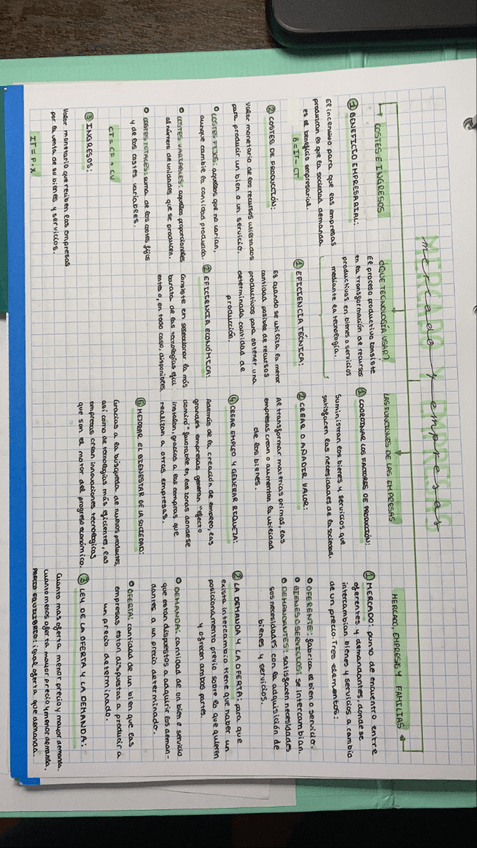 MERCADO Y EMPRESAS
mercado y empresas
COSTES E INGRESOS
① BENEFICIO EMPRESARIAL:
El incentivo para que las empresas
produzcan lo que la sociedad demanda
es el beneficio empresarial.
B = IT - CT
② COSTES DE PRODUCCIÓN:
Valor monetario de los recursos utilizados
para producir un bien o un servicio.
COSTES FIJOS: aquellos que no varían,
aunque cambie la cantidad producida.
COSTES VARIABLES: aquellos proporcionales
al número de unidades que se producen.
COSTES TOTALES: suma de los costes fijos
y de los costes variables.
CT = CF + CV
③ INGRESOS:
Valor monetario que reciben las empresas
por la venta de sus bienes y servicios.
IT = P · X
¿QUÉ TECNOLOGÍA USAR?
El proceso productivo consiste
en la transformación de recursos
productivos en bienes o servicios
mediante la tecnología.
① EFICIENCIA TÉCNICA:
Es cuando se utiliza la menor
cantidad posible de recursos
productivos para obtener una
determinada cantidad de
producción.
② EFICIENCIA ECONÓMICA:
Consiste en seleccionar la más
barata de las tecnologías que
en todo caso, disponibles
LAS FUNCIONES DE LAS EMPRESAS
① COORDINAR LOS FACTORES DE PRODUCCIÓN:
Suministran los bienes y servicios que
satisfacen las necesidades de la sociedad.
② CREAR O AÑADIR VALOR:
Al transformar materias primas, las
empresas crean o aumentan la utilidad
de los bienes.
CREAR EMPLEO Y GENERAR RIQUEZA:
Además de la creación de empleo, las
grandes empresas generan "efecto
en las zonas donde se
instalan, gracias a las compras que
realizan a otras empresas.
MEJORAR EL BIENESTAR DE LA SOCIEDAD:
Gracias a la búsqueda de nuevos productos,
así como de tecnologías más eficientes, las
empresas crean innovaciones tecnológicas
que son el motor del progreso económico.
MERCADO, EMPRESAS Y FAMILIAS
① MERCADO: punto de encuentro entre
oferentes y demandantes, donde se
intercambian bienes y servicios a cambio
de un precio. Tres elementos:
OFERENTE: fabrica el bien o servicio.
BIENES O SERVICIOS: se intercambian.
DEMANDANTES: satisfacen necesidades
sus necesidades con la adquisición de
bienes y servicios.
② LA DEMANDA Y LA OFERTA: para que
exista intercambio tiene que haber un
posicionamiento previo sobre lo que quieren
y ofrecen ambas partes.
DEMANDA: cantidad de un bien o servicio
que están dispuestos a adquirir los deman-
dantes a un precio determinado.
OFERTA: cantidad de un bien que las
empresas están dispuestas a producir a
un precio determinado.
③ LEY DE LA OFERTA Y LA DEMANDA:
Cuanta más oferta menor precio y mayor demanda.
Cuanta menos oferta mayor precio y menor demanda.
PRECIO EQUILIBRIO: igual oferta que demanda.